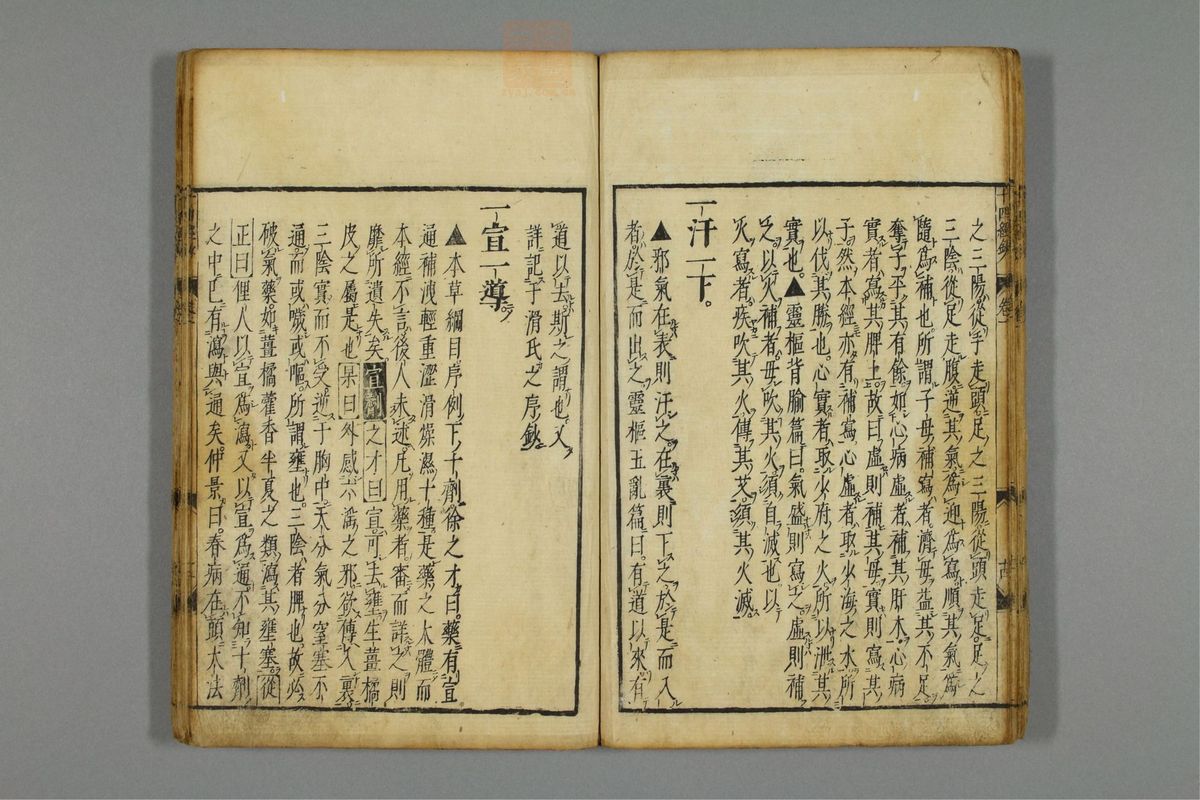 之三陽從手走頭足之三陽從頭走足足之
三陰從足走腹逆其氣爲迎爲寫順其氣爲
隨爲補也所謂子母補寫者濟母益其不足
奪子平其有餘如心病虛者補其肝木心病
實者寫其脾土故曰虛則補其母實則寫其
子然本經亦有補寫心虛者取少海之水所
以伐其勝也心實者取少府之火所以泄其
實也▲靈樞背腧篇曰氣盛則寫之虛則補
之以火補者毋吹其火須自滅也以
火寫者疾吹其火傳其艾須其火滅
一汗一下
▲邪氣在表則汗之在裏則下之於是而入
者於是而出之靈樞五亂篇曰有道以來有
道以去斯之謂也又
詳記于滑氏之序鈔
一宣一導
▲本草綱目序例下十劑徐之才曰藥有宣
通補洩輕重澀滑燥濕十種是藥之大體而
本經不言後人未述凡用藥者審而詳之則
靡所遺失矣宣劑之才曰宣可去壅生薑橘
皮之屬是也杲曰外感六淫之邪欲傳入裏
三陰實而不受逆于胸中天分氣分窒塞不
通而或噦或嘔所謂壅也三陰者脾也故必
破氣藥如薑橘藿香半夏之類瀉其壅塞從
正曰俚人以宣爲瀉又以宣爲通不知十劑
之中已有瀉與通矣仲景曰春病在頭大法